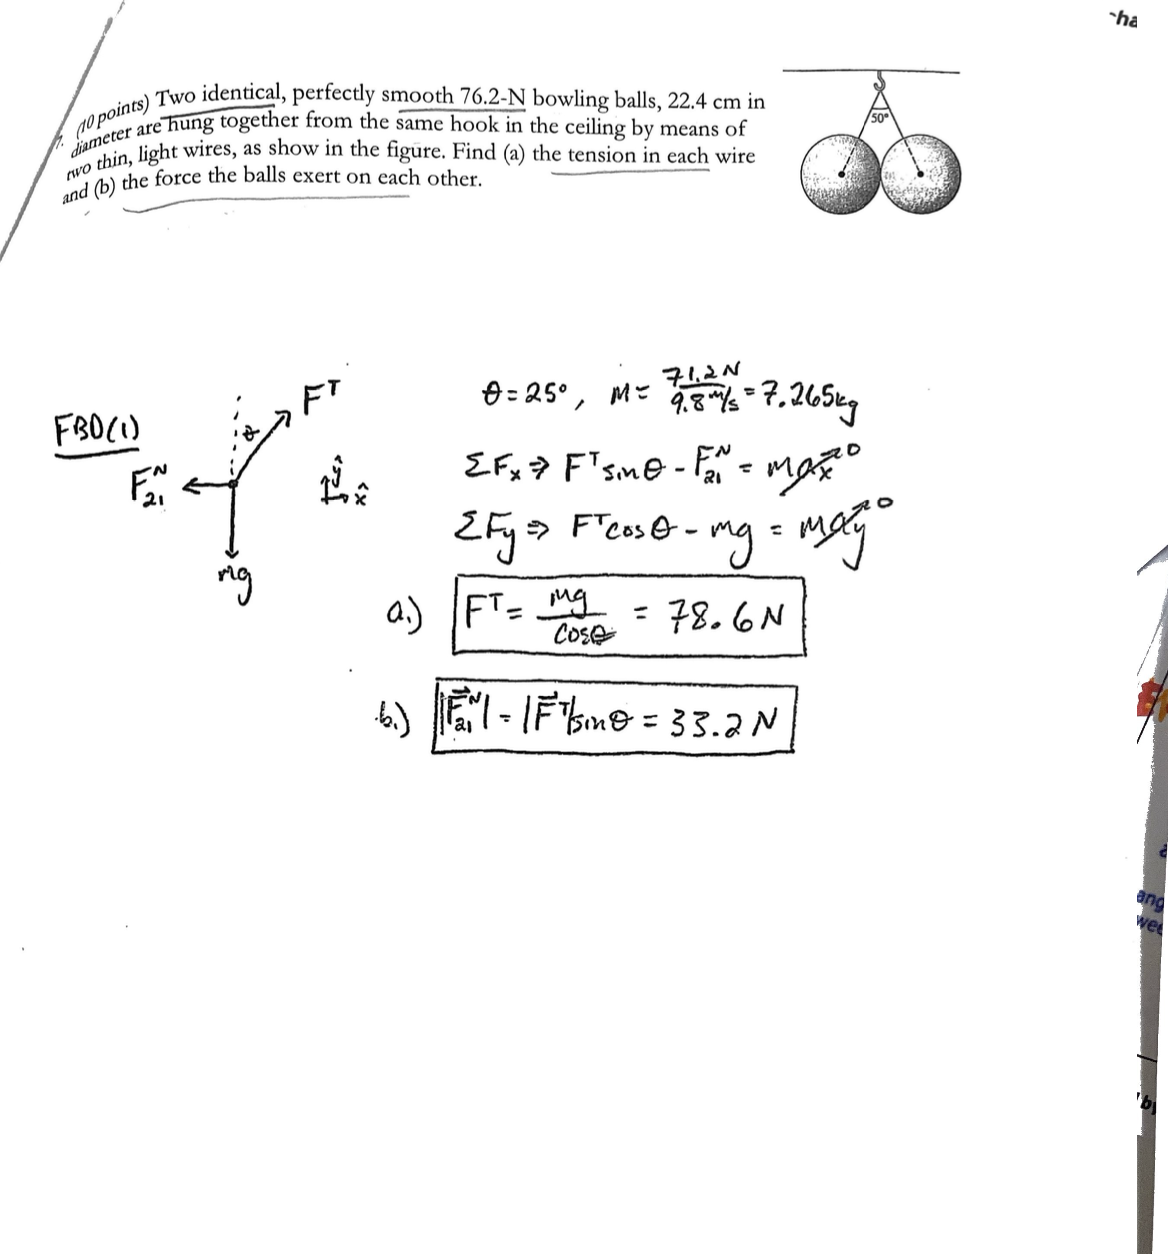 -ha
7. (10 points) Two identical, perfectly smooth 76.2-N bowling balls, 22.4 cm in
diameter are hung together from the same hook in the ceiling by means of
two thin, light wires, as show in the figure. Find (a) the tension in each wire
and (b) the force the balls exert on each other.
50°
FBD(1)
F^T
θ
F^N_21
ŷ
x̂
mg
θ = 25°, M = 71.2N / 9.8 m/s = 7.265kg
ΣFx ⇒ F^T sinθ - F^N_21 = max → 0
ΣFy ⇒ F^T cosθ - mg = may → 0
a.) F^T = mg / cosθ = 78.6 N
b.) |F⃗^N_21| = |F⃗^T| sinθ = 33.2 N
ang
wee
by